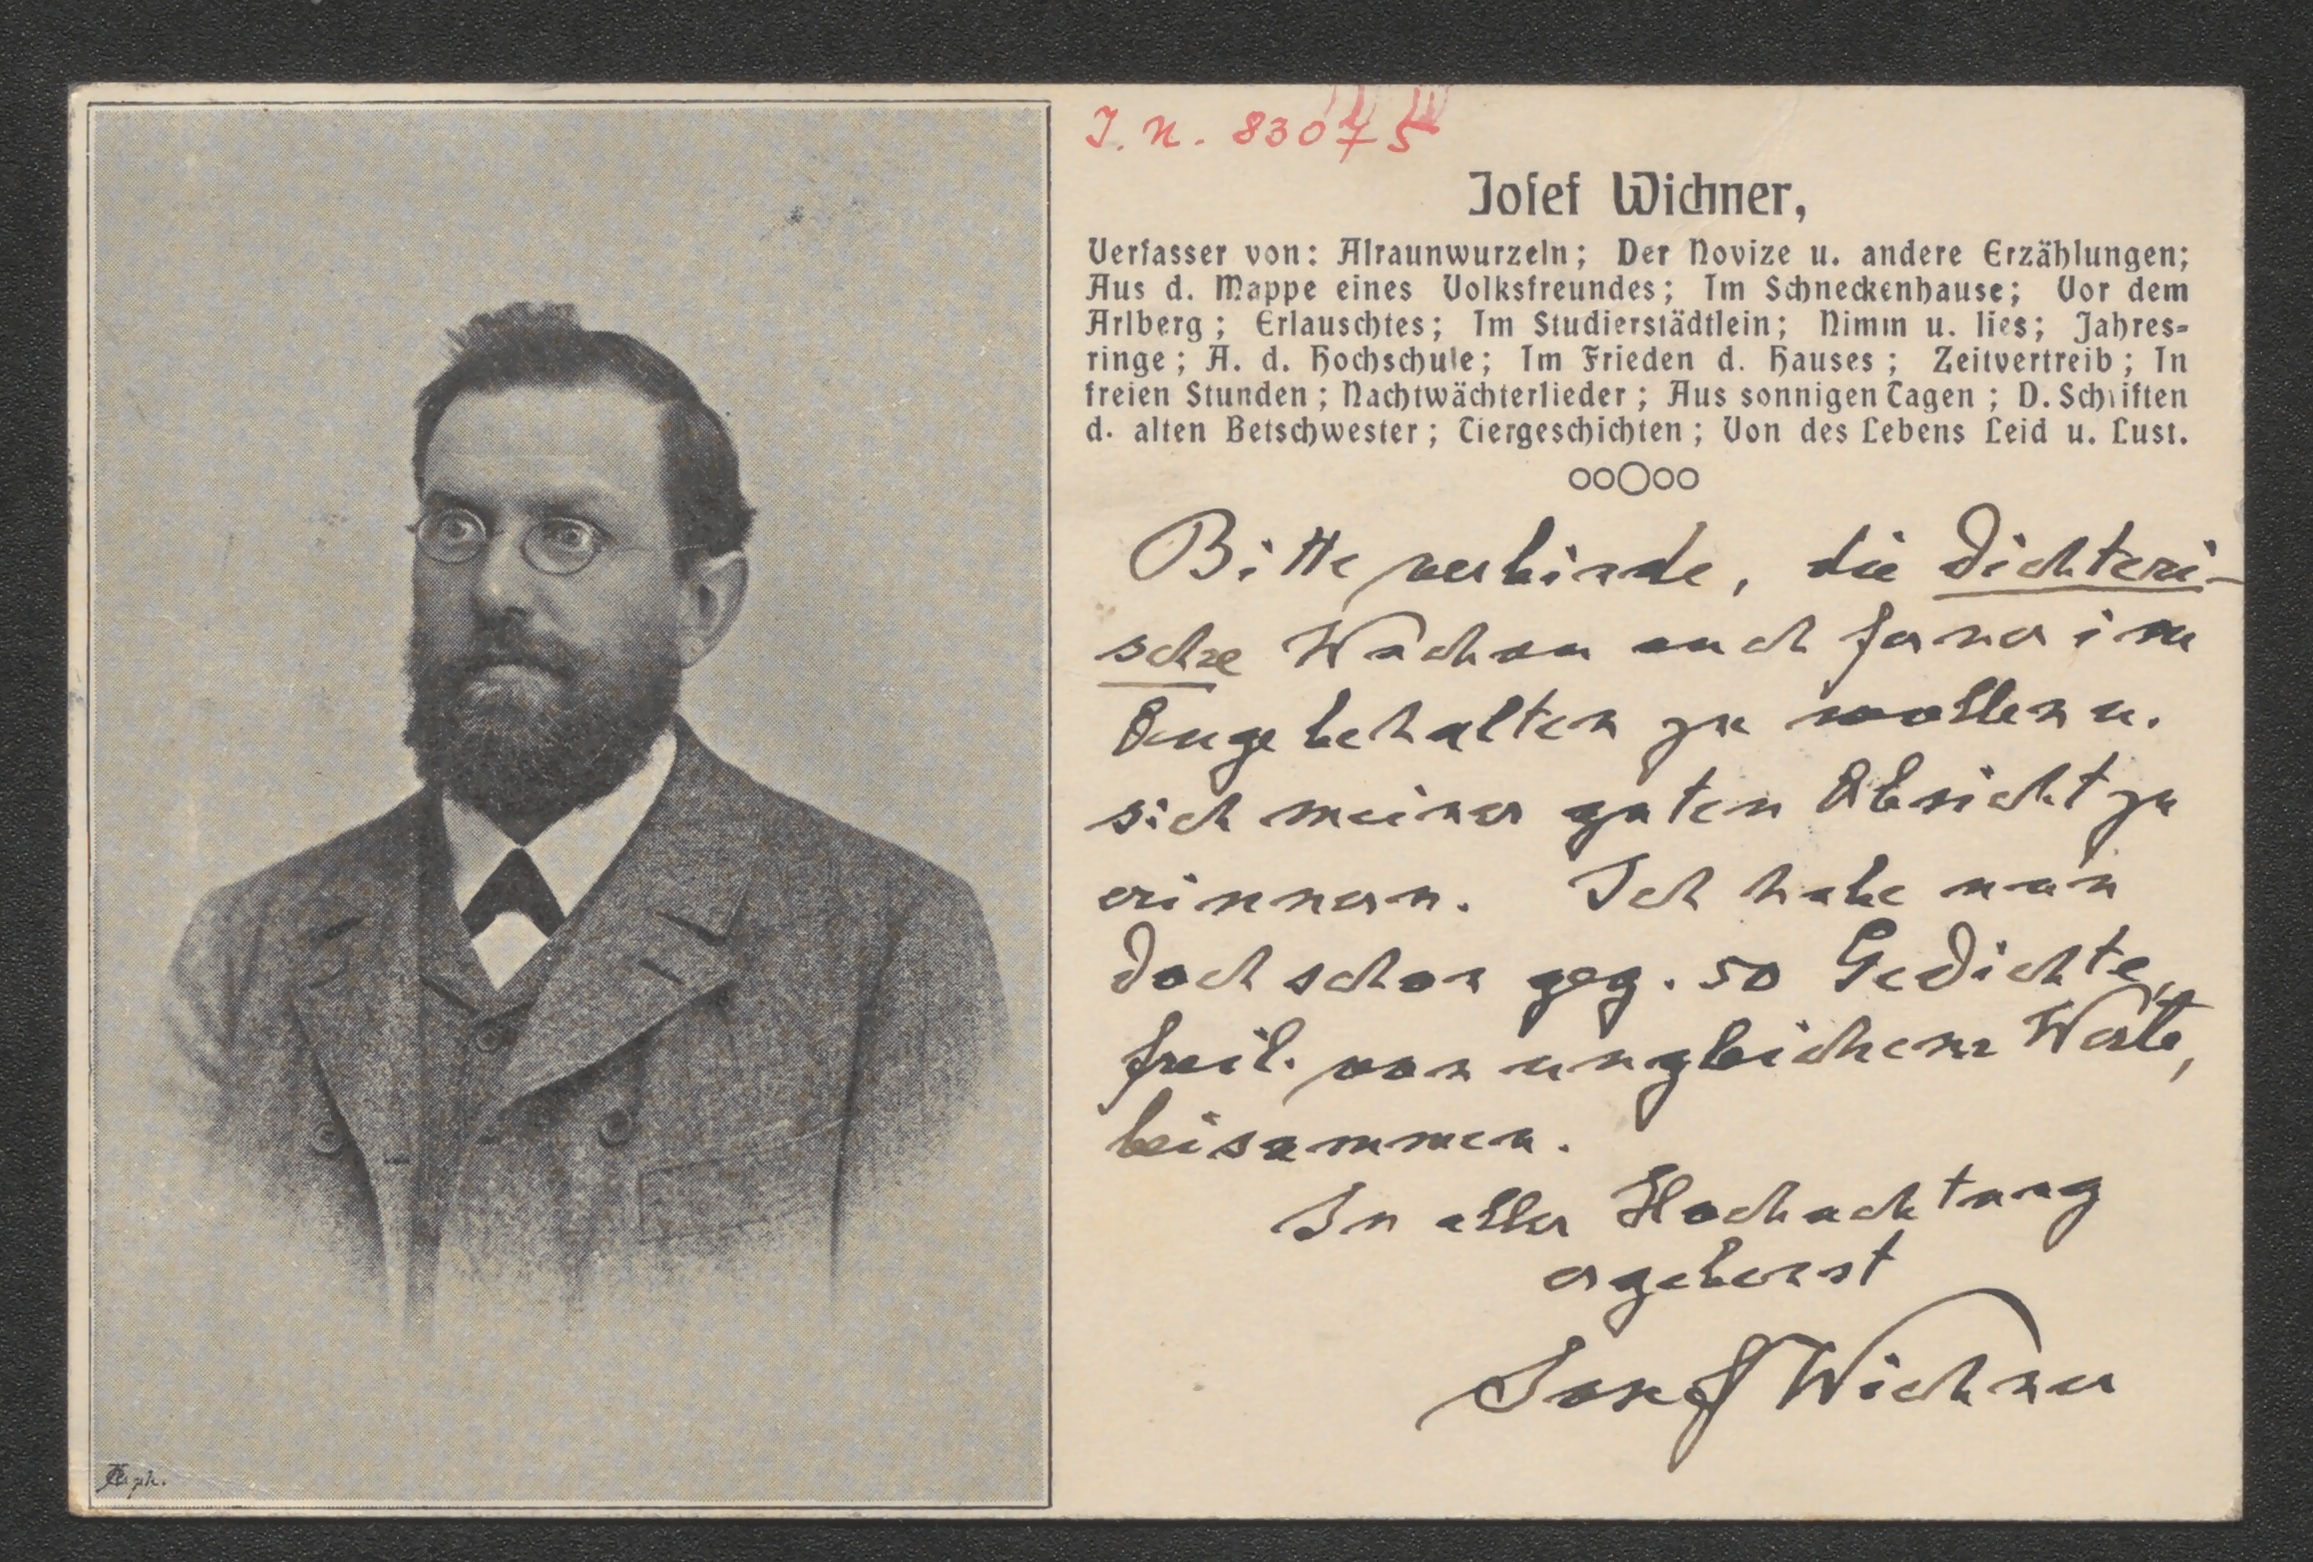 J. N. 83075
Josef Wichner,
Verfasser von: Alraunwurzeln; Der Novize u. andere Erzählungen;
Aus d. Mappe eines Volksfreundes; Im Schneckenhause; Vor dem
Arlberg; Erlauschtes; Im Studierstädtlein; Nimm u. lies; Jahres-
ringe; A. d. Hochschule; Im Frieden d. Hauses; Zeitvertreib; In
freien Stunden; Nachtwächterlieder; Aus sonnigen Tagen; D. Schriften
d. alten Betschwester; Tiergeschichten; Von des Lebens Leid u. Lust.
Bitte verbinde, die dichteri-
sche Wachau auch ferner im
Auge behalten zu wollen u.
sich meiner guten Absicht zu
erinnern. Ich habe nun
doch schon geg. 50 Gedichte,
freil. von ungleichem Werte,
beisammen.
In aller Hochachtung
ergebenst
Josef Wichner